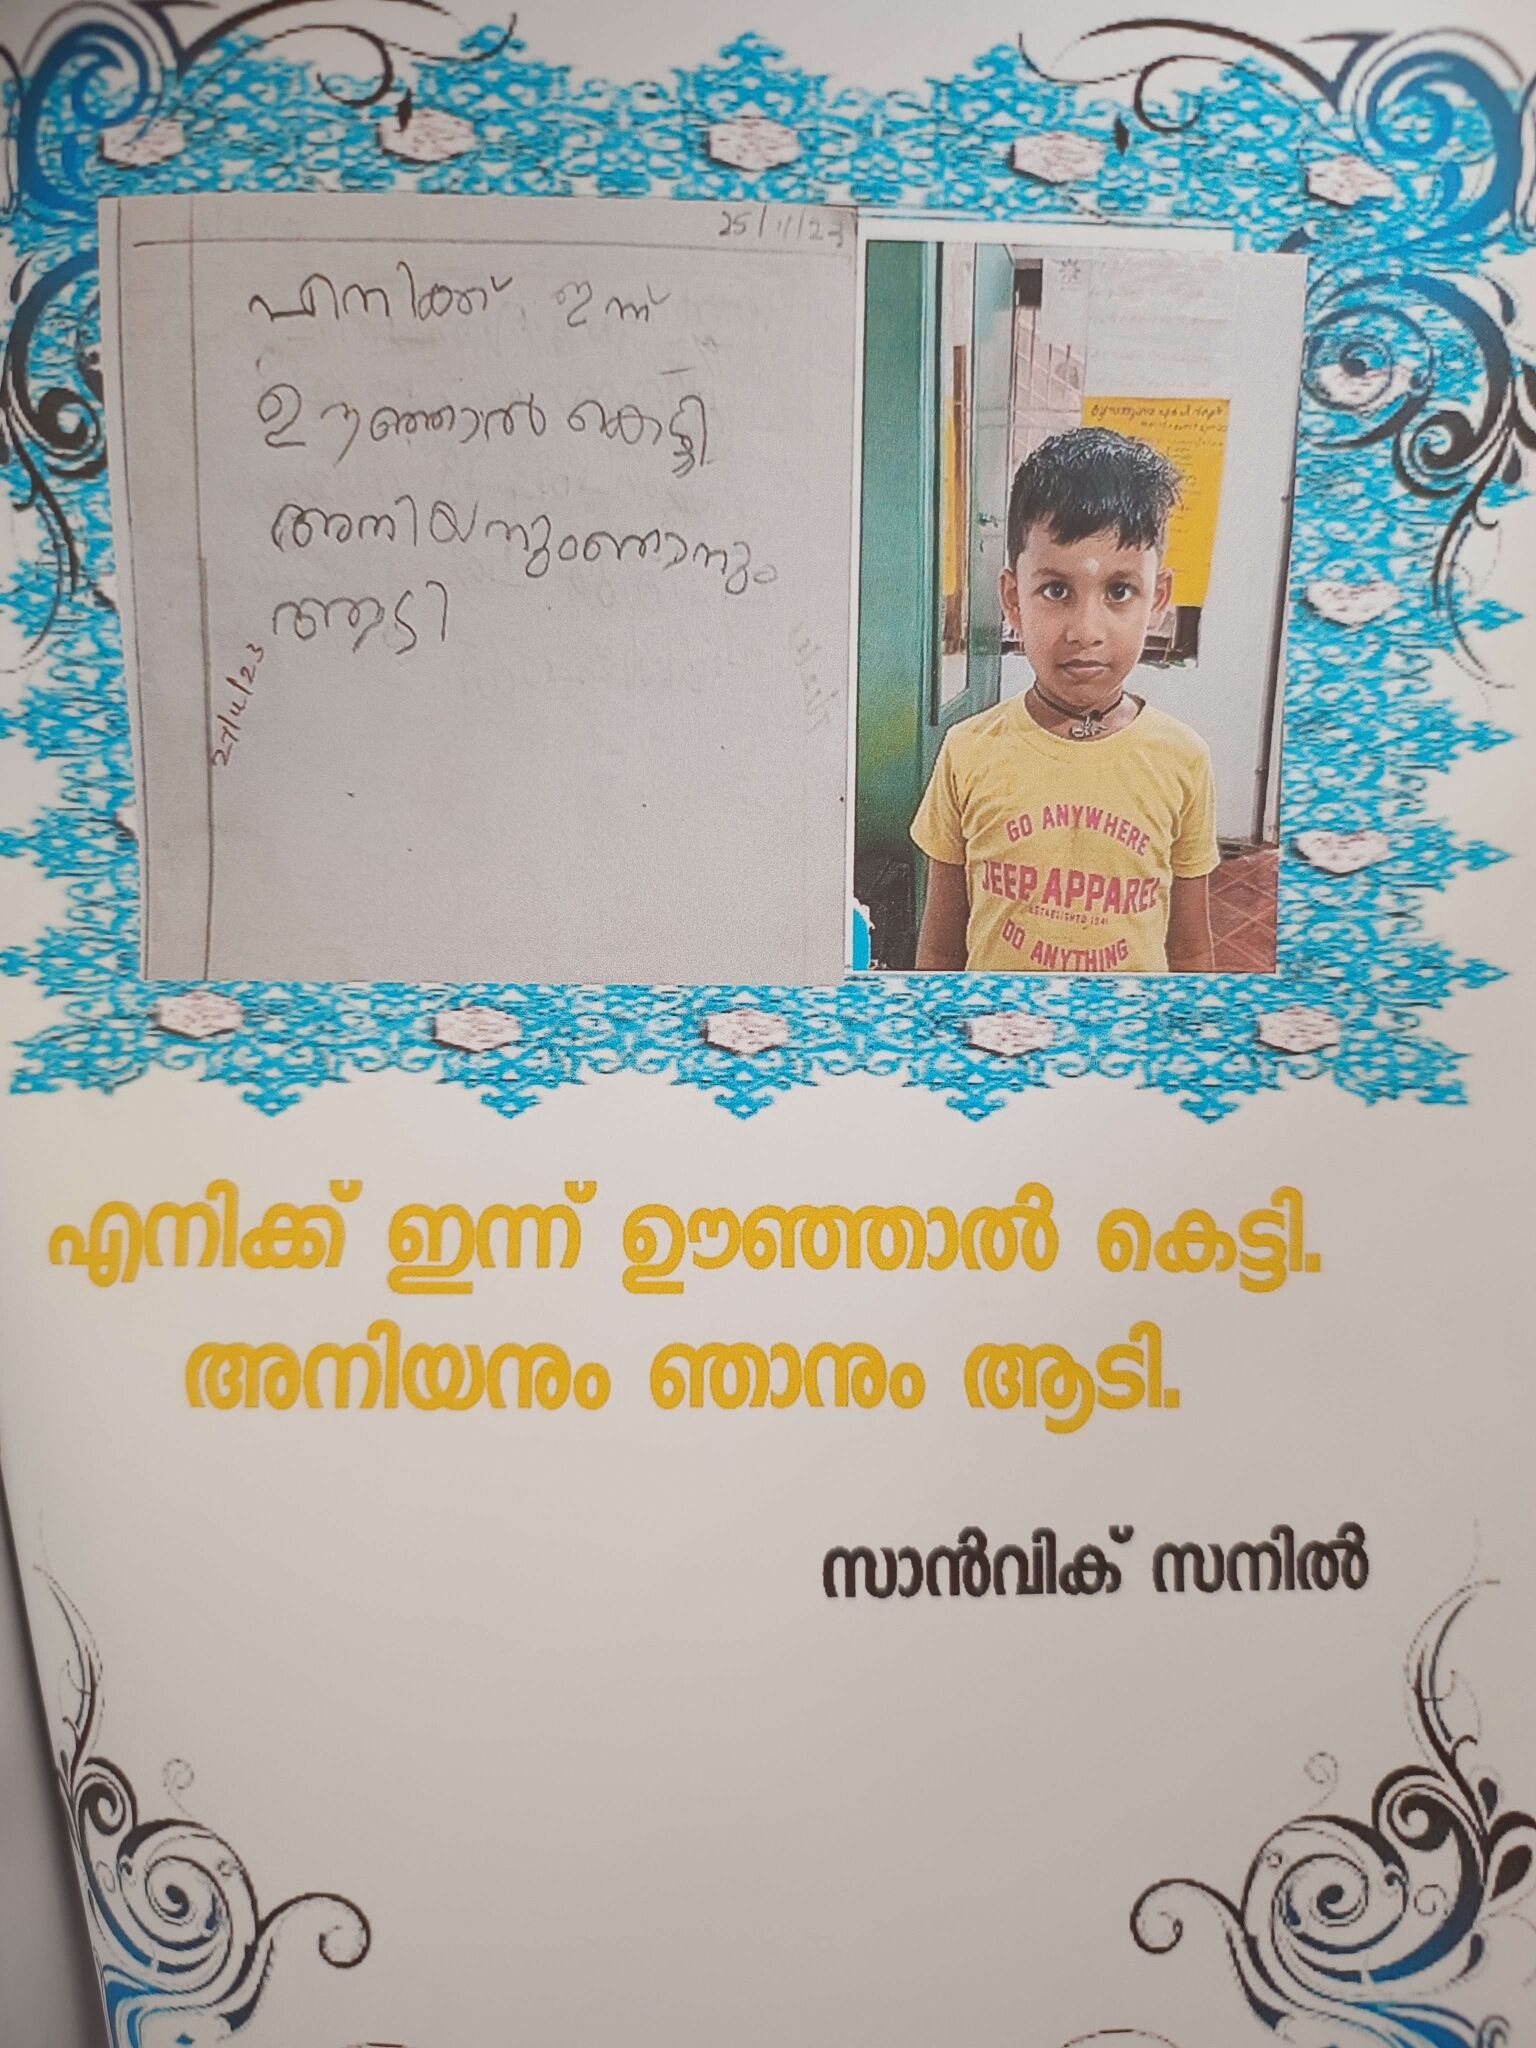 25/11/23
എനിക്ക് ഇന്ന്
ഊഞ്ഞാൽ കെട്ടി
അനിയനുംഞാനും
ആടി
27/11/23
GO ANYWHERE
JEEP APPAREL
ESTABLISHED 1941
DO ANYTHING
എനിക്ക് ഇന്ന് ഊഞ്ഞാൽ കെട്ടി.
അനിയനും ഞാനും ആടി.
സാൻവിക് സനിൽ